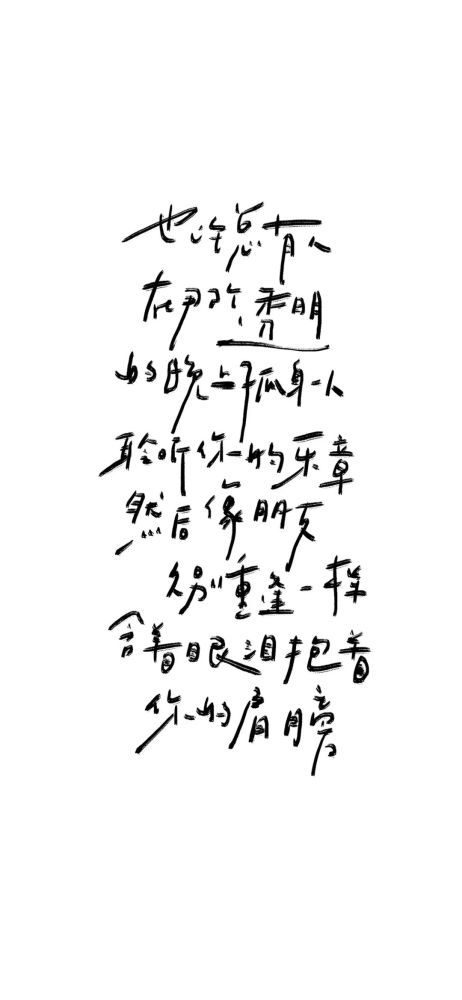 也许总有人
在那个透明
的晚上孑孤身一人
聆听你的乐章
然后像朋友
久别重逢一样
含着眼泪抱着
你的肩膀